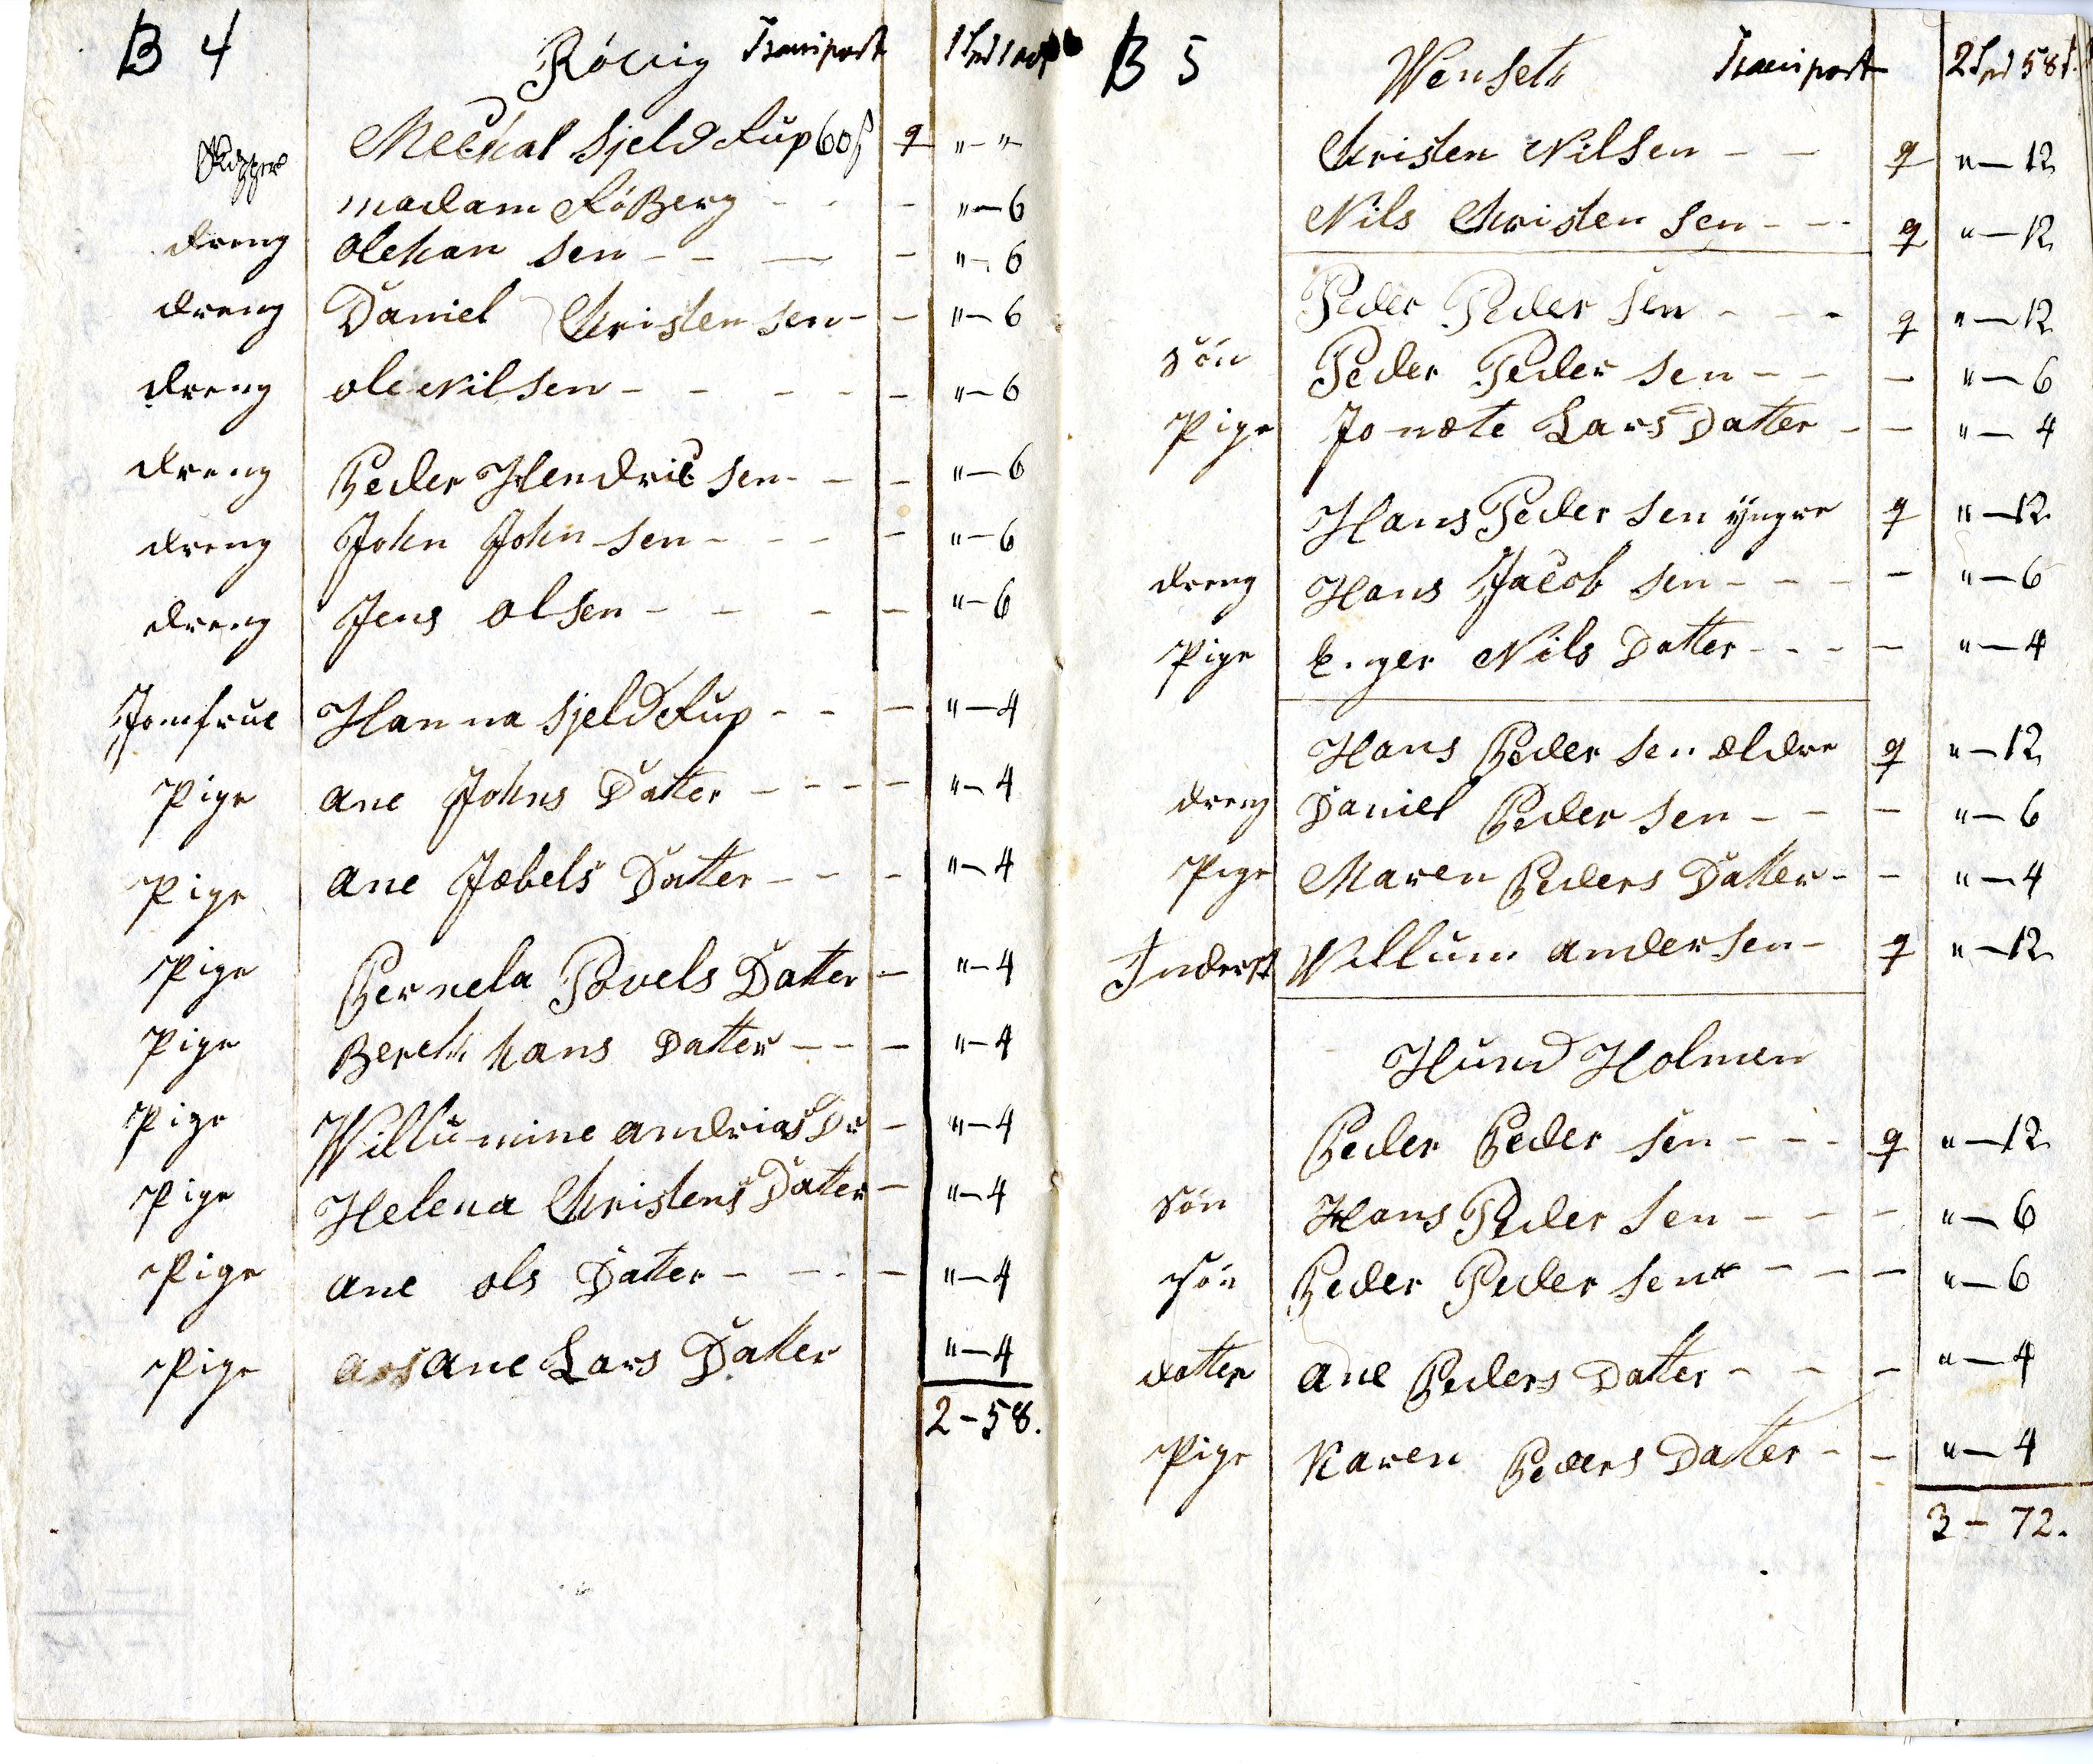 B 4 Röcvig Transport
Mechal Sjeldrup 60ß q "-"
madam Röberg - - - "-6
dreng olehan sen - - - - "-6
dreng Daniel Christen sen - - "-6
dreng ole Nilsen - - - - - "-6
dreng Peder Hendric sen - - - "-6
dreng John John-sen - - - - "-6
dreng Jens olsen - - - - "-6
Jomfrue Hanna Sjeldrup - - - "-4
Pige ane Johns Datter - - - - "-4
Pige ane Jæbels Datter - - - "-4
Pige Pernela Povels Datter - "-4
Pige Bereth hans Datter - - - "-4
Pige Willumine andrias Dr - "-4
Pige Helena Christens Datter - "-4
Pige ane ols Datter - - - - "-4
Pige ane Lars Datter "-4
2-58.
B 5 Wenset Transport 2 58
Christen Nilsen - - q "-12
Nils Christen sen - - - q "-12
Peder Peder sen - - - q "-12
sön Peder Peder sen - - - "-6
Pige Jonæte Lars Datter - - "-4
Hans Peder sen yngre q "-12
dreng Hans Jacob sen - - - - "-6
Pige Nils Datter - - - - "-4
Hans Peder sen ældre q "-12
dreng Daniel Peder sen - - - "-6
Pige Maren Peders Datter - - "-4
Inderst Willum andersen - q "-12
Hund Holmen
Peder Peder sen - - - q "-12
sön Hans Peder sen - - - "-6
sön Peder Peder sen - - - "-6
datter ane Peders Datter - - - "-4
Pige Karen Peders Datter - - "-4
3-72.